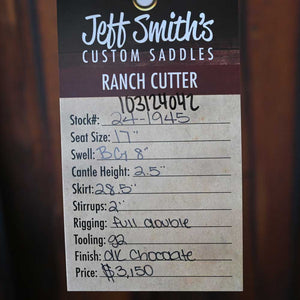 Jeff Smith's
CUSTOM SADDLES
RANCH CUTTER
103124042
Stock#: 24-1945
Seat Size: 17"
Swell: BG 8"
Cantle Height: 2.5"
Skirt: 28.5"
Stirrups: 2"
Rigging: full double
Tooling: g2
Finish: dk chocolate
Price: $3,150